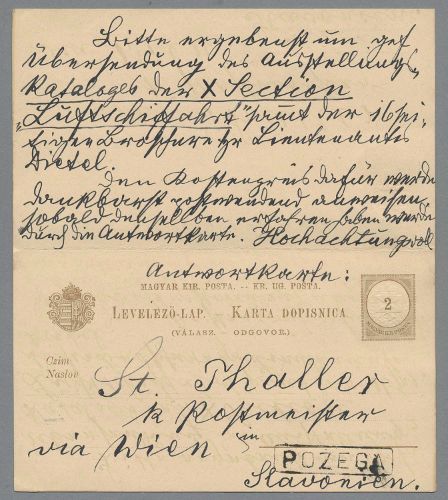 Bitte ergebenst um gef
Übersendung des Ausstellungs-
kataloges der X Section
"Luftschiffahrt" sammt der 16sei-
tigen Broschure Lieutenants
Dietel.
Den Kostenpreis dafür werde
dankbarst postwendend anweisen,
sobald denselben erfahren haben werde
durch die Antwortkarte. Hochachtungsvoll
Antwortkarte:
MAGYAR KIR. POSTA. -- KR. UG. POŠTA.
LEVELEZŐ-LAP. — KARTA DOPISNICA.
(VÁLASZ. – ODGOVOR.)
2
Czím
Naslov
St. Thaller
k Postmeister
via Wien in
POZEGA
Slavonien.